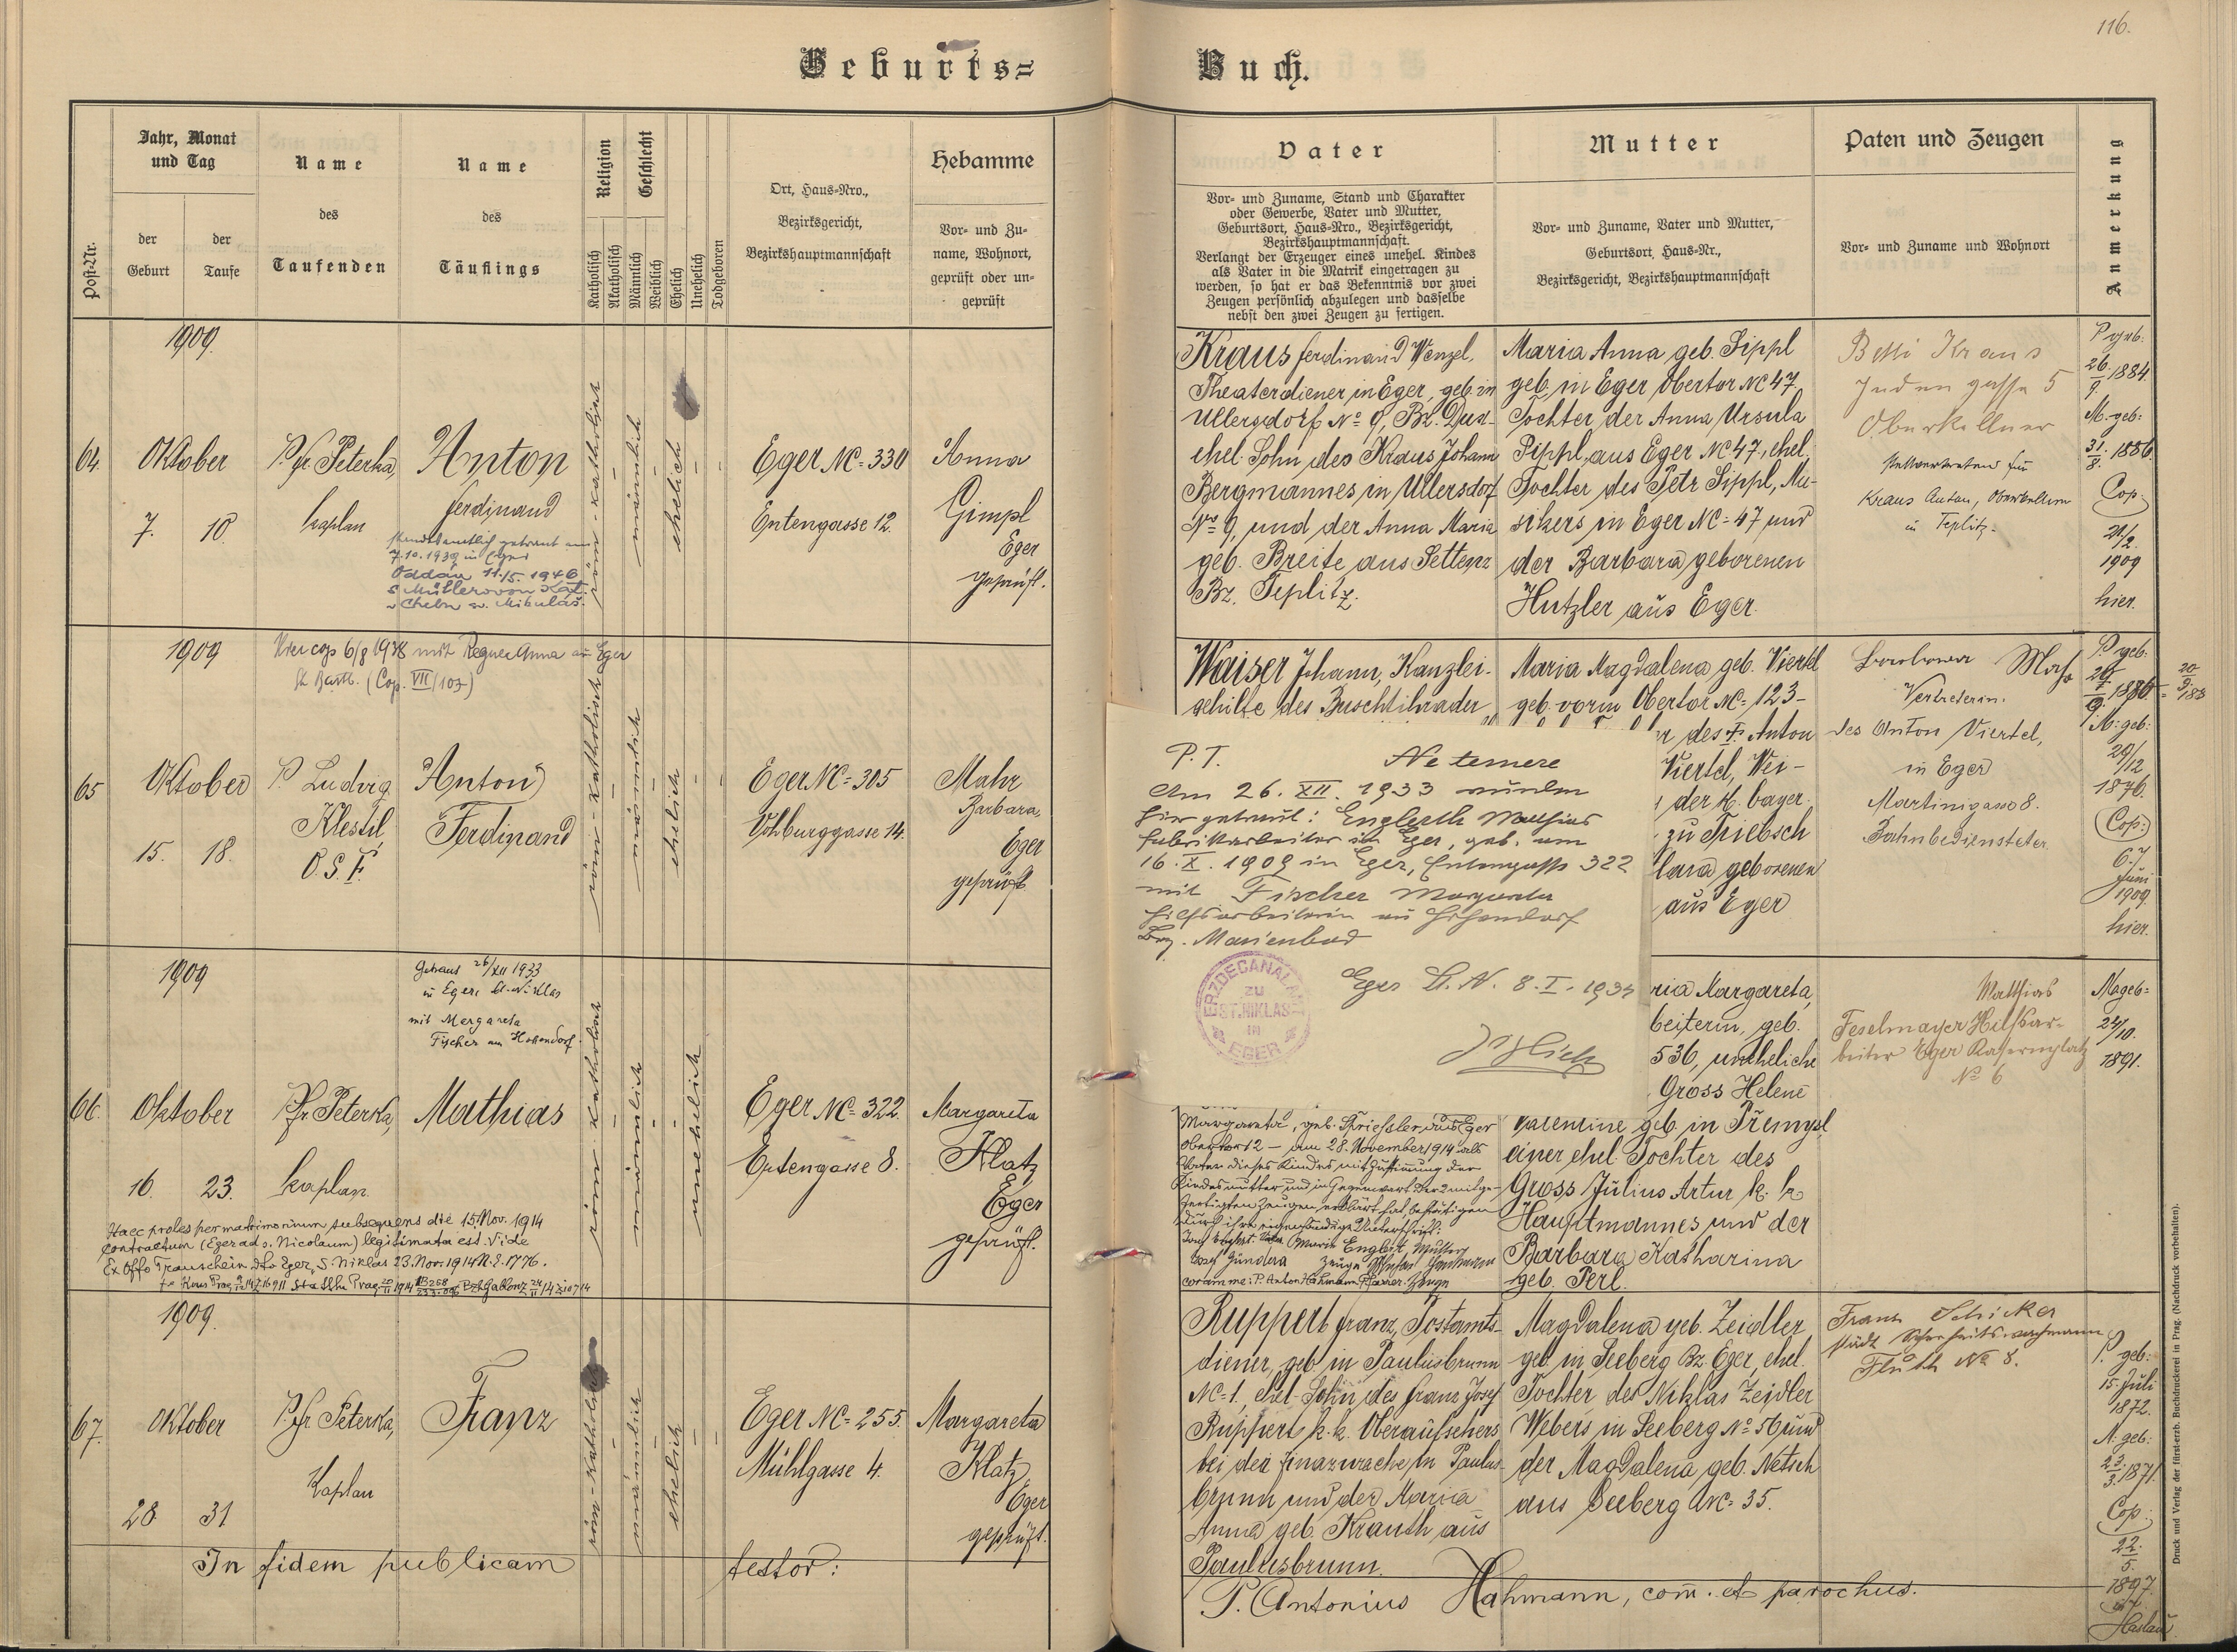 116.
Geburts=
Buch.
Post-Nr.
Jahr, Monat
und Tag
der
Geburt
der
Taufe
Name
des
Taufenden
Name
des
Täuflings
Religion
Katholisch
Akatholisch
Geschlecht
Männlich
Weiblich
Ehelich
Unehelich
Todgeboren
Ort, Haus-Nro.,
Bezirksgericht,
Bezirkshauptmannschaft
Hebamme
Vor- und Zu-
name, Wohnort,
geprüft oder un-
geprüft
Vater
Vor- und Zuname, Stand und Charakter
oder Gewerbe, Vater und Mutter,
Geburtsort, Haus-Nro., Bezirksgericht,
Bezirkshauptmannschaft.
Verlangt der Erzeuger eines unehel. Kindes
als Vater in die Matrik eingetragen zu
werden, so hat er das Bekenntnis vor zwei
Zeugen persönlich abzulegen und dasselbe
nebst den zwei Zeugen zu fertigen.
Mutter
Vor- und Zuname, Vater und Mutter,
Geburtsort, Haus-Nr.,
Bezirksgericht, Bezirkshauptmannschaft
Paten und Zeugen
Vor- und Zuname und Wohnort
Anmerkung
1909.
64.
Oktober
7. 10.
P. Fr. Peterka,
Kaplan
Anton
Ferdinand
standesamtlich getraut am
7.10.1939 in Eger
Oddán 11./5. 1946
s Müllerovou
v Chebu sv. Mikuláš.
röm-katholisch
männlich
ehelich
Eger NC=330
Entengasse 12.
Anna
Gimpl
Eger
geprüft.
Kraus Ferdinand Wenzel,
Theaterdiener in Eger, geb. in
Ullersdorf No 9, Bz. Dux-
ehel. Sohn des Kraus Johann
Bergmannes in Ullersdorf
No 9, und der Anna Maria
geb. Breite aus Settenz
Bz. Teplitz.
Maria Anna geb. Sippl
geb. in Eger Obertor NC 47.
Tochter der Anna Ursula
Sippl, aus Eger NC 47, ehel.
Tochter des Petr Sippl, Mu-
sikers in Eger NC=47 und
der Barbara geborenen
Hutzler aus Eger.
Betti Kraus
Judengasse 5
Oberkellner
stellvertretend für
Kraus Anton, Oberkellner
in Teplitz.
P. geb:
26./9. 1884.
M. geb:
31./8. 1886.
Cop.
21/2.
1909
hier.
1909
Hier cop 6/8 1938 mit Regner Anna aus Eger
St. Bartl. (Cop. VII/103)
65
Oktober
15. 18.
P. Ludwig
Klestil,
O.S.F.
Anton
Ferdinand
röm-katholisch
männlich
ehelich
Eger NC=305
Vohburggasse 14.
Mahr
Barbara,
Eger
geprüft.
Waiser Johann, Kanzlei-
gehilfe des Buschtihrader
Maria Magdalena geb. Viertel
geb. vorm Obertor NC=123-
des † Anton
Viertel, Wei-
der K. bayer.
zu Triebsch
lara geborenen
aus Eger
Barbara Mahr
Vertreterin.
des Anton Viertel,
in Eger
Martinigasse 8.
Bahnbediensteter.
P. geb:
M. geb:
29/12
1876.
Cop:
6.
Juni
1909.
hier.
P. T. Ne temere
Am 26. XII. 1933 wurden
hier getraut: Englerth Mathias
Fabrikarbeiter in Eger, geb. am
16. X. 1909 in Eger, Entengasse 322
mit Fischer Margareta
Hilfsarbeiterin in Hohendorf
Bez. Marienbad
Eger St. N. 8. I. 1934
ERZDECANALAMT
ZU
ST. NIKLAS
IN
EGER
1909
Getraut 26/XII 1933
in Eger, St. Niklas
mit Margareta
Fischer aus Hohendorf.
66.
Oktober
16. 23.
P. Fr. Peterka,
Kaplan.
Mathias
röm-katholisch
männlich
unehelich
Eger NC=322.
Entengasse 8.
Margareta
Klatz
Eger
geprüft.
Haec proles per matrimonium subsequens die 15. Nov. 1914
contractum (Eger ad s. Nicolaum) legitimata est. Vide
Ex Offo Trauschein dto Eger, S. Niklas 23. Nov. 1914 N.E. 1776.
Margareta, geb. Triessler aus Eger
Obertor 2 – am 28. November 1914 als
Vater dieses Kindes mit Zustimmung der
Kindesmutter und in Gegenwart der 2 mitge-
fertigten Zeugen erklärt hat, bestätigen
durch ihre eigenhändige Unterschrift:
Marie Englert, Mutter
coram me: P. Anton Hahmann, Pfarrer. Zeuge
ria Margareta,
beiterin, geb.
536, uneheliche
Gross Helene
Valentine geb. in Přemysl,
einer ehel. Tochter des
Gross Julius Artur k. k.
Hauptmannes und der
Barbara Katharina
geb. Perl.
Matthias
Feselmayer Hilfsar-
beiter Eger Kasernplatz
No 6
M. geb:
24/10.
1891.
1909.
67.
Oktober
28 31
P. Fr. Peterka,
Kaplan
Franz
röm-katholisch
männlich
ehelich
Eger NC=255.
Mühlgasse 4.
Margareta
Klatz,
Eger
geprüft.
Ruppert Franz, Postamts-
diener, geb. in Paulusbrunn
NC=1., ehel. Sohn des Franz Josef
Ruppert k. k. Oberaufsehers
bei der Finazwache in Paulus-
brunn und der Maria
Anna geb. Krauth aus
Paulusbrunn.
Magdalena geb. Zeidler
geb. in Seeberg Bz. Eger, ehel.
Tochter des Niklas Zeidler
Webers in Seeberg No 56 und
der Magdalena geb. Netsch
aus Seeberg NC=35.
Franz Schicker
städt Sicherheitswachmann
Fluth No 8.
P. geb:
15. Juli
1872.
M. geb:
23./3. 1871.
Cop:
22./5.
1897.
Haslau
In fidem publicam testor:
P. Antonius Hahmann, com. et parochus.
Druck und Verlag der fürst-erzb. Buchdruckerei in Prag. (Nachdruck vorbehalten).